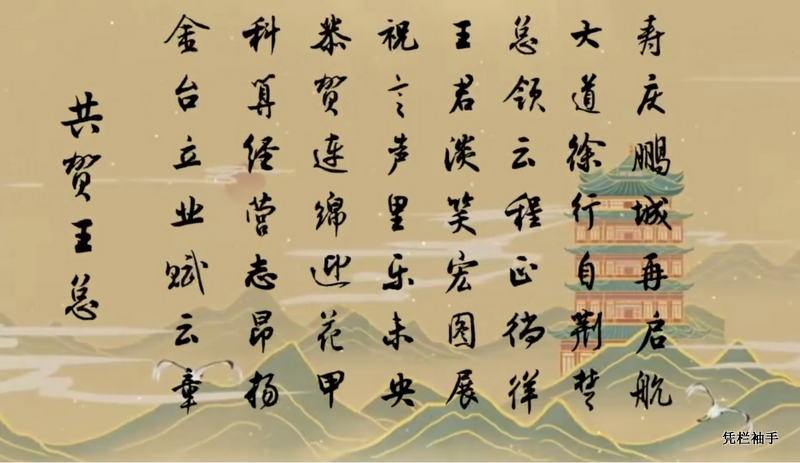 寿庆鹏城再启航
大道徐行自荆楚
总领云程正徜徉
王君淡笑宏图展
祝言声里乐未央
恭贺连绵迎花甲
科算经营志昂扬
金台立业赋云章
共贺王总
凭栏袖手